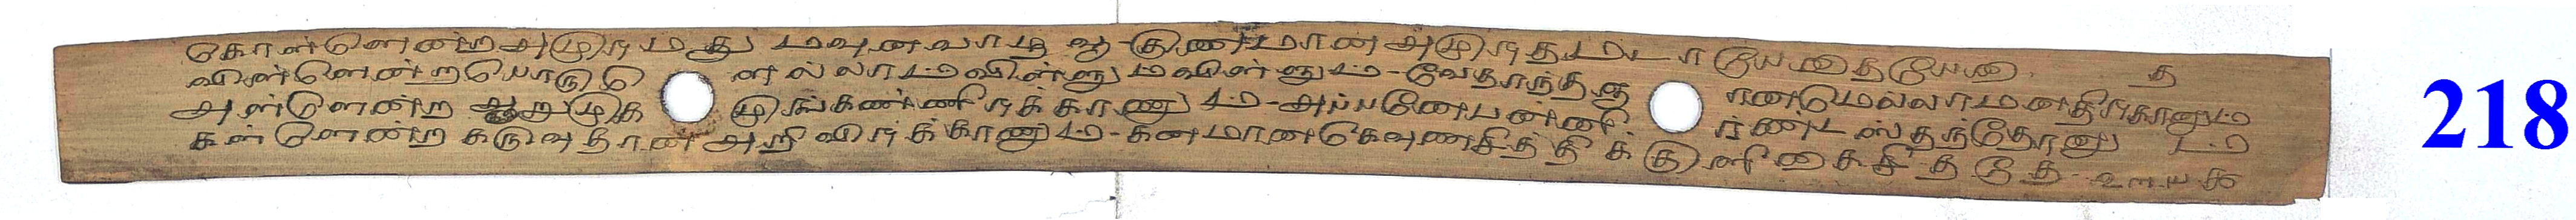 கொள்ளென்ற அமுர்மது மவுனவாழ்வு - குணமான அமுர்தமடா யேகுதயேகு. த
விள்ளென்றபொருளெ னல்லாம்விள்ளும்விள்ளும் - வேதாந்தவ ரணமெல்லாமனதிர்காணும்
அள்ளென்ற ஆறுமுக முங்கண்ணிர்க்காணும் - அப்பனேபன்னி ர்ண்டஸ்தந்தோனும்
கள்ளென்ற கருவுதான் அறிவிர்க்காணும் - கனமானகெவுணசித்திக்குளிகைசித்தே உளயக
218